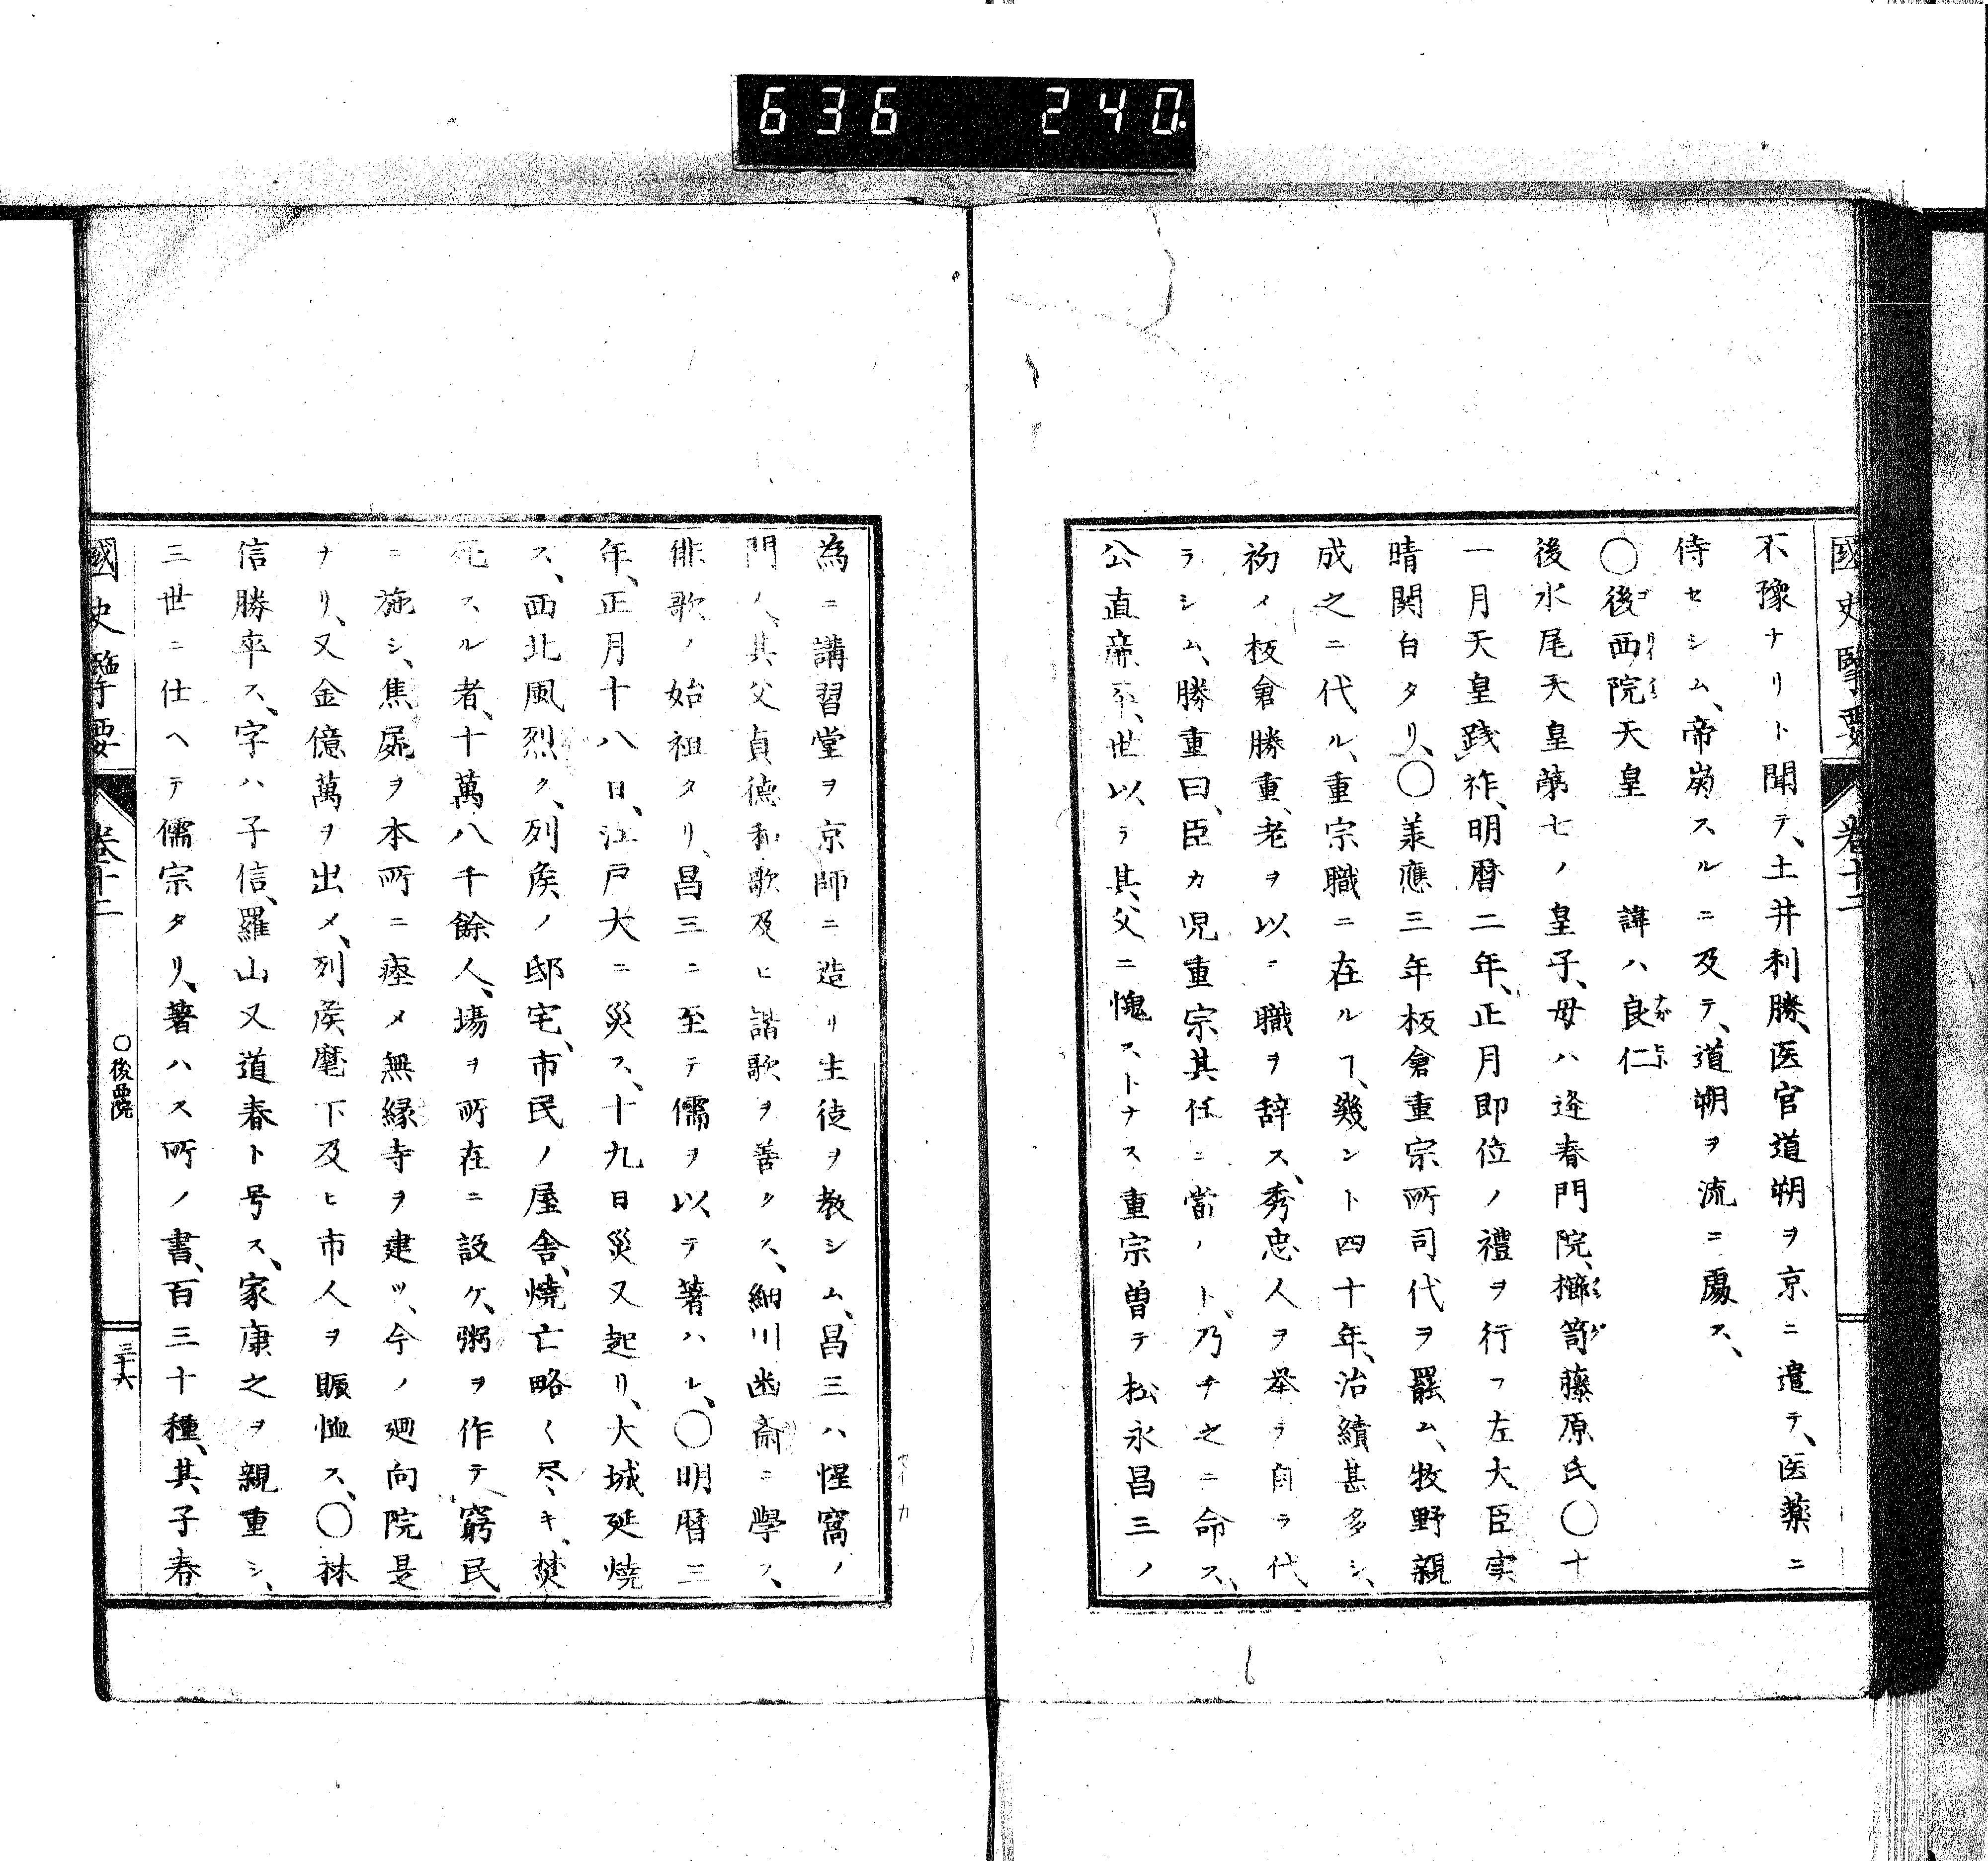 636 240
國史擥要 卷十二
不豫ナリト聞テ、土井利勝、医官道朔ヲ京ニ遣テ、医薬ニ
侍セシム、帝崩スルニ及テ、道朔ヲ流ニ處ス、
〇後西院天皇 諱ハ良仁
後水尾天皇第七ノ皇子、母ハ逢春門院、櫛笥藤原氏〇十
一月天皇践祚、明暦二年、正月即位ノ禮ヲ行フ左大臣実
晴関白タリ、〇羕應三年板倉重宗所司代ヲ罷ム、牧野親
成之ニ代ル、重宗職ニ在ルヿ、幾ント四十年、治績甚多シ、
初メ板倉勝重、老ヲ以ニ職ヲ辞ス、秀忠人ヲ挙ラ自ラ代
ラシム、勝重曰、臣カ児重宗其任ニ當ノト、乃チ之ニ命ス、
公直廉平、世以ラ其父ニ愧ストナス重宗曽テ松永昌三ノ
為ニ講習堂ヲ京師ニ造リ生徒ヲ教シム、昌三ハ惺窩ノ
セイカ
門人、其父貞徳和歌及ヒ諧歌ヲ善クス、細川幽齋ニ學フ、
俳歌ノ始祖タリ、昌三ニ至テ儒ヲ以テ著ハル、〇明暦三
年、正月十八日、江戸大ニ災ス、十九日災又起リ、大城延焼
ス、西北風烈ク、列矦ノ邸宅、市民ノ屋舎、焼亡略〱尽キ、焚
死スル者、十萬八千餘人、場ヲ所在ニ設ケ、粥ヲ作テ窮民
ニ施シ、焦屍ヲ本所ニ瘞メ無縁寺ヲ建ツ、今ノ廻向院是
ナリ、又金億萬ヲ出メ、列矦麾下及ヒ市人ヲ賑恤ス、〇林
信勝卒ス、字ハ子信、羅山又道春ト号ス、家康之ヲ親重シ、
三世ニ仕ヘテ儒宗タリ、著ハス所ノ書、百三十種、其子春
國史擥要 卷十二 〇後西院 三十六